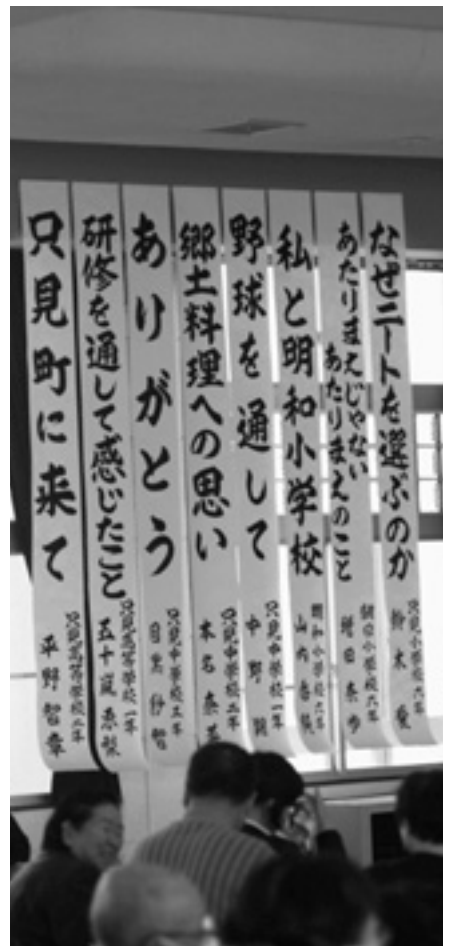 なぜニートを選ぶのか
只見小学校六年
鈴木 愛
あたりまえじゃない
あたりまえのこと
朝日小学校六年
増田 奈歩
私と明和小学校
明和小学校六年
山内
野球を通して
只見中学校一年
中野 翔
郷土料理への思い
只見中学校二年
本名 奈菜
ありがとう
只見中学校三年
目黒 紗智
研修を通して感じたこと
只見高等学校一年
五十嵐 奈緒
只見町に来て
只見高等学校二年
平野 智章